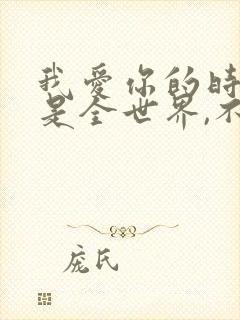 我爱你的时
是全世界,不
庞氏